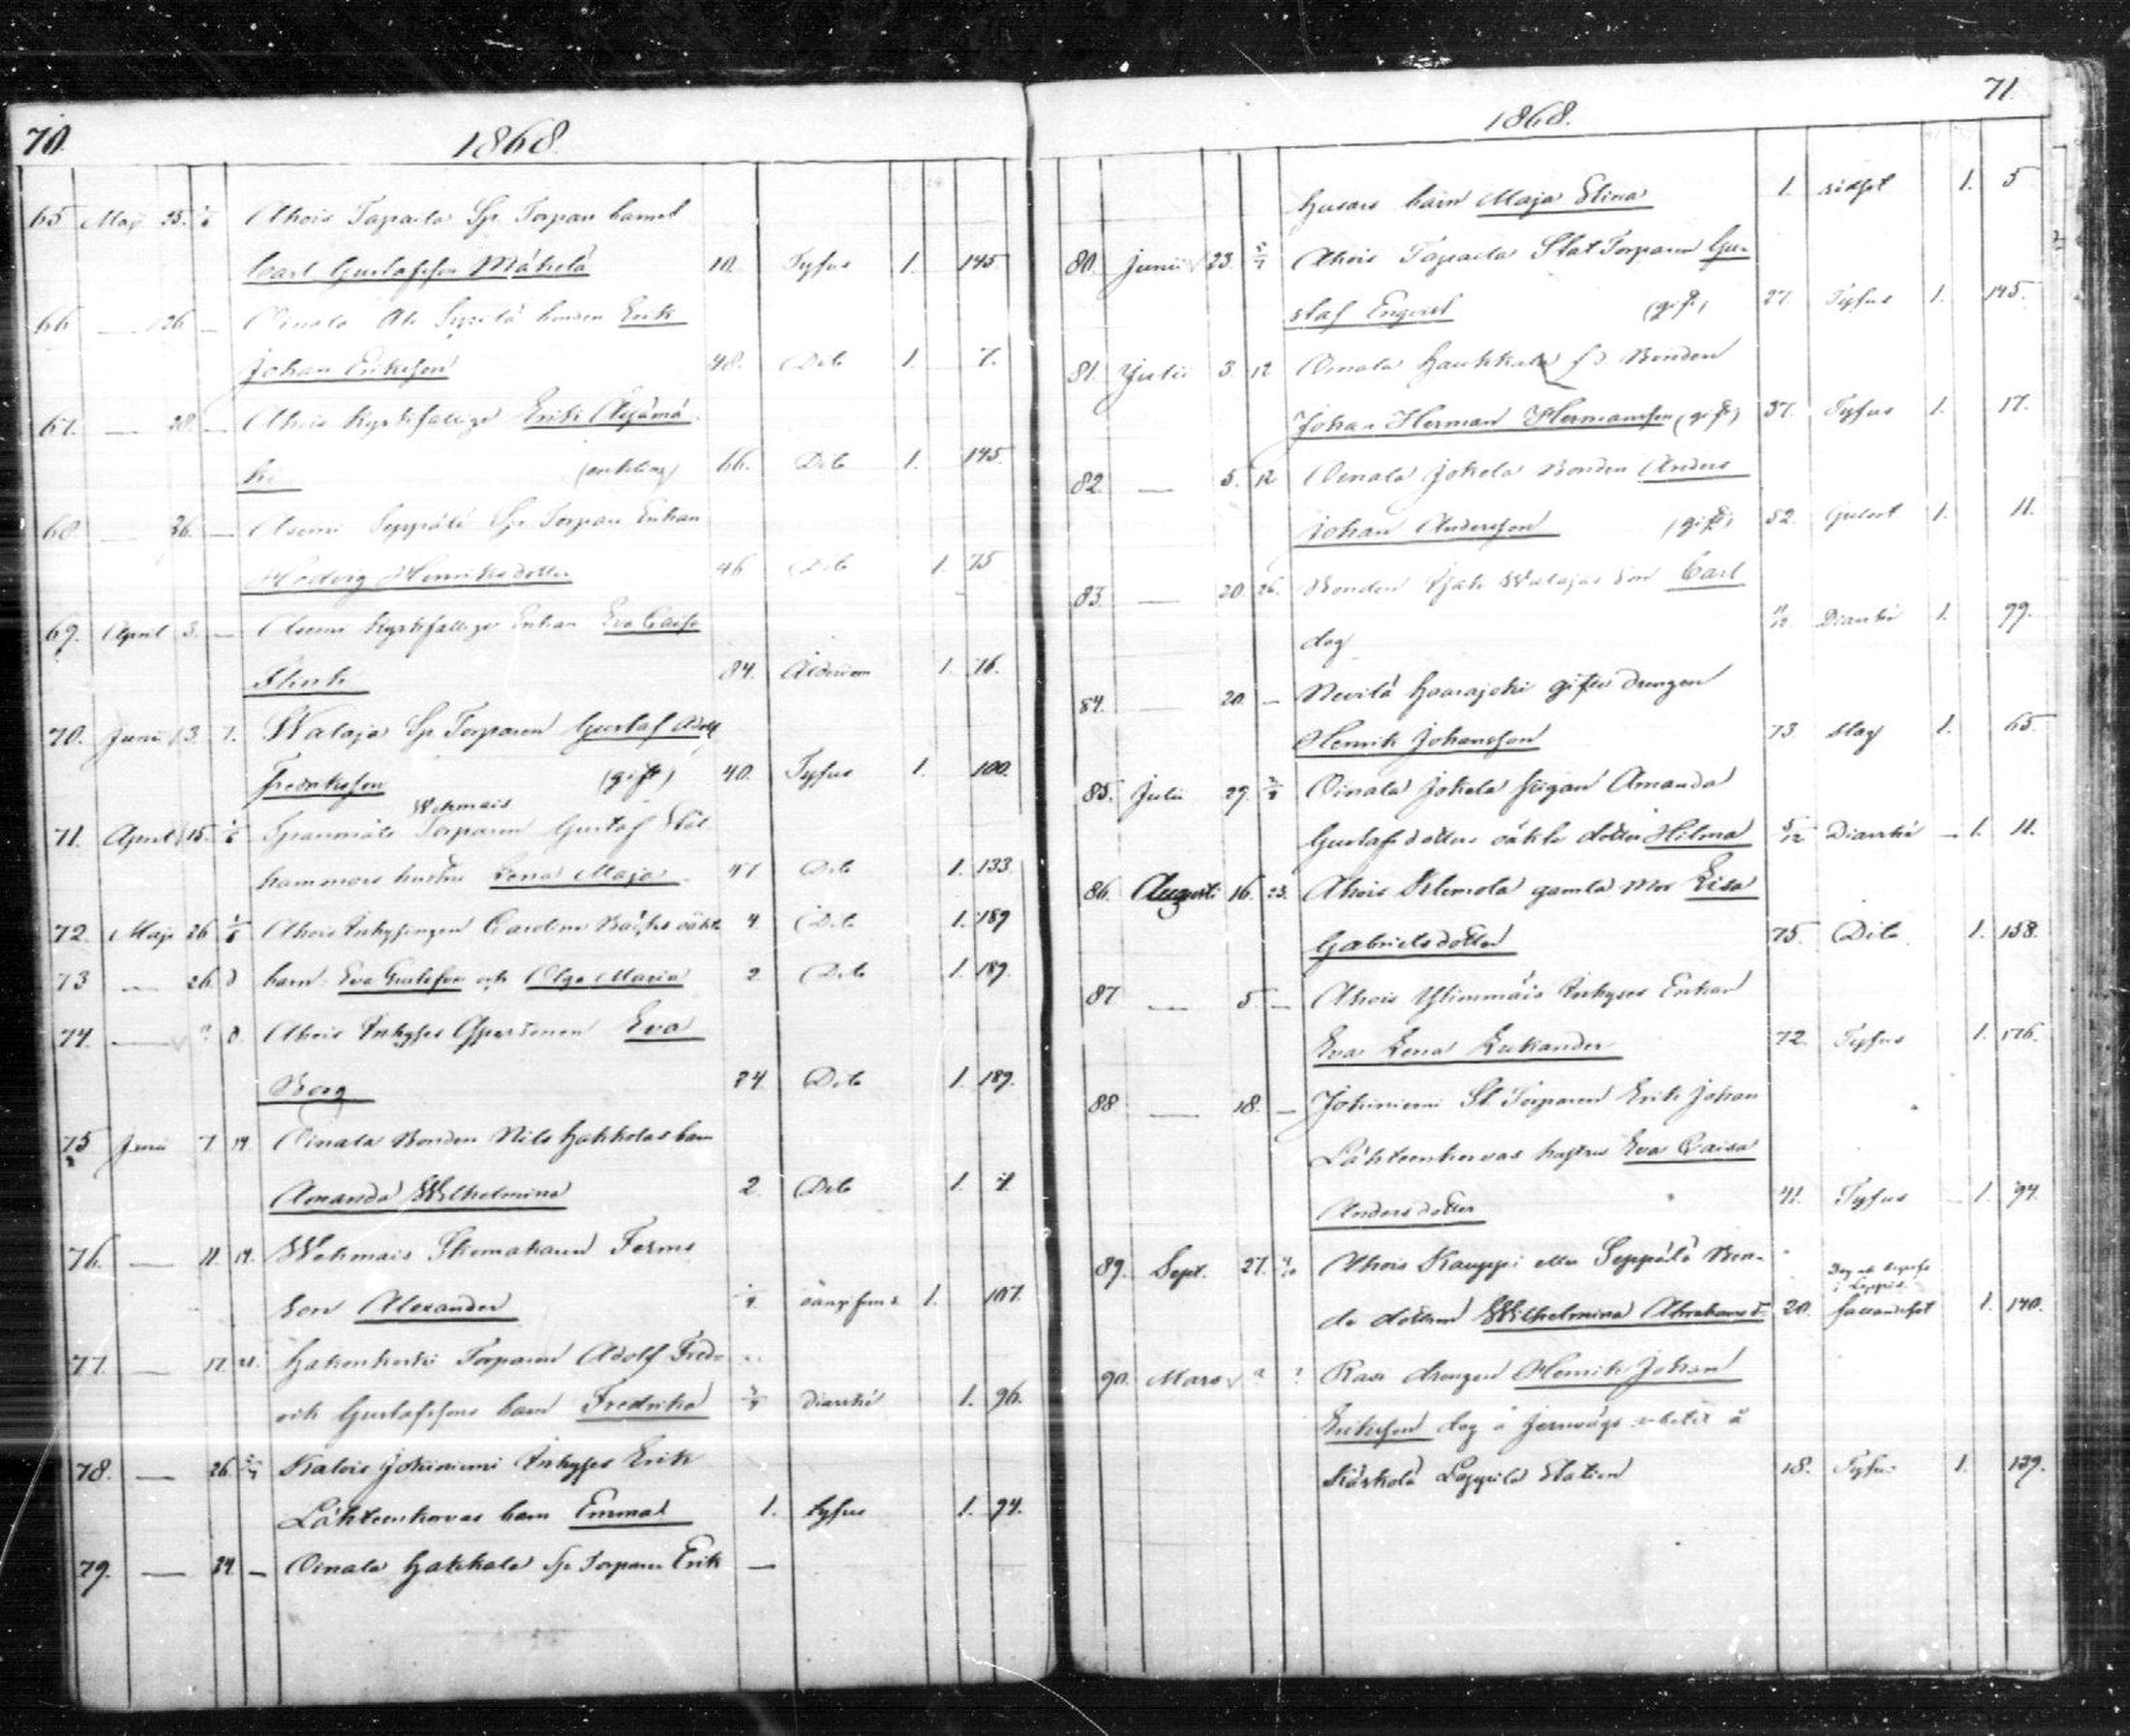 70.
1868.
65 Maj 25. Ahois Tapaila Sp. Torpare barnet
Carl Gustafsson Mäkelä 10. Tyfus 1. 145.
66 — 26 — Oinala bonden Erik
Johan Eriksson 48. Dito 1. 7.
67. — 28. — Ahois Kyrkfattige Erik Alajämä
ki (enkling) 66. Dito 1. 145.
68. — 26. — Seppälä Sp. Torpare Enkan
Hedvig Henriksdotter 46 Dito 1. 75
69. April 3. — Kyrkfattige Enkan Eva Caisa
Flink 84. Ålderdom 1. 76.
70. Junii 3. 7. Walaja Sp Torparen Gustaf Adolf
Fredriksson (gift) 40. Tyfus 1. 100.
Wehmais
71. April 15. Torparen Gustaf
hammars hustru Lena Maja 47 Dito 1. 133.
72. Maji 26 Ahois Inhysingen Carolina oäkta 4 Dito 1. 189
73 — 26. d barn: Eva Gustafva och Olga Maria 2 Dito 1. 189.
74. — ? d. Ahois Inhyses Eva
Berg 84. Dito 1. 189.
75 Junii 7 14. Oinala Bonden Nils Hakkolas barn
Amanda Wilhelmina 2. Dito 1. 4.
76. — 11. 14. Wehmais
Son Alexander 1. 107.
77. — 17. 21. Torparen Adolf Fred-
rik Gustafssons barn Fredrika diarrhé 1. 96.
78. — 26. Kalois Jokiniemi Inhyses Erik
Lähteenkorvas barn Emma 1. tyfus 1. 94.
79. — 24. — Oinala Hakkala Sp Torpare Erik —
71.
1868.
Husars barn Maja Stina 1. 1. 5
80. Junii 23. 5/7 Ahois Tapaila Stat Torparen Gu-
staf Enqvist (gift) 27. Tyfus 1. 145.
81. Julii 3. 12 Oinala Haukkala fd Bonden
Johan Herman Hermansson (gift) 37. Tyfus 1. 17.
82. — 5. 12 Oinala Jokela Bonden Anders
Johan Andersson (gift) 52. 1. 11.
83. — 20. 26. Bonden Walajas Son Carl
dog Diarrhé 1. 99.
84. — 20. — Nevilä Haarajoki gifta Drengen
Henrik Johansson 73. slag 1. 65.
85. Julii 29. Oinala Jokela pigan Amanda
Gustafsdotters oäkta dotter Hilma 5/12 Diarrhé 1. 11.
86. Augusti 16. 23. Ahois Klemola gamla Mor Lisa
Gabrielsdotter 75. Dito 1. 158.
87 — 5. — Ahois Ylimmäis Inhyses Enkan
Eva Lena Lukander 72. Tyfus 1. 176.
88 — 18. — Jokiniemi St. Torparen Erik Johan
Lähteenkorvas hustru Eva Caisa
Andersdotter 41. Tyfus 1. 94.
89. Sept. 27. Ahois Kauppi eller Seppälä Bon-
de dottern Wilhelmina Abrahamsd. 20. fallandesot 1. 140.
90. Mars ? ? Rasi drengen Henrik Johan
Eriksson dog å jernvägs arbetet å
Kärkölä Lappila Station 18. Tyfus 1. 139.